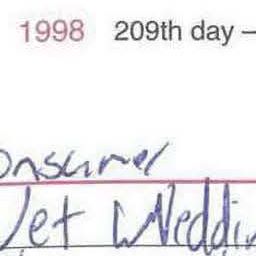 1998 209th day –
onsumer
Vet Weddin